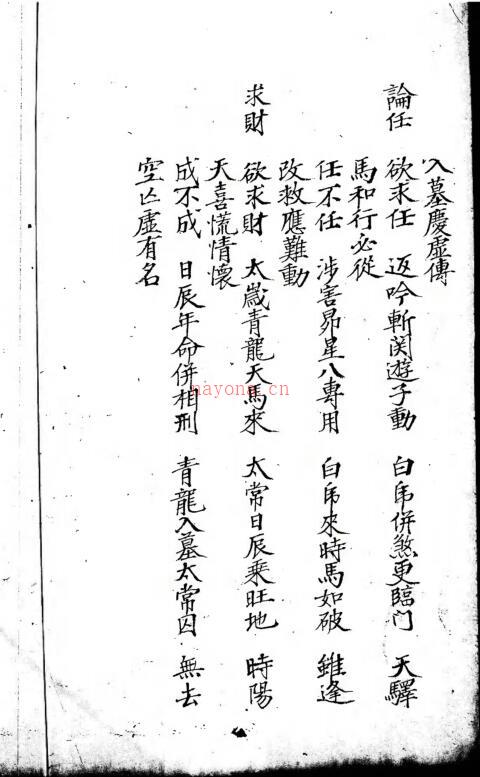 入墓慶虛傳
論任 欲求任 返吟斬関遊子動 白乕併煞更臨门 天驛
馬和行必從
任不任 涉害昴星八專用 白乕來時馬如破 雖逢
改救應難動
求財 欲求財 太歲青龍天馬來 太常日辰乗旺地 時陽
天喜慌情懷
成不成 日辰年命併相刑 青龍入墓太常囚 無去
空亡虛有名
nayona.cn